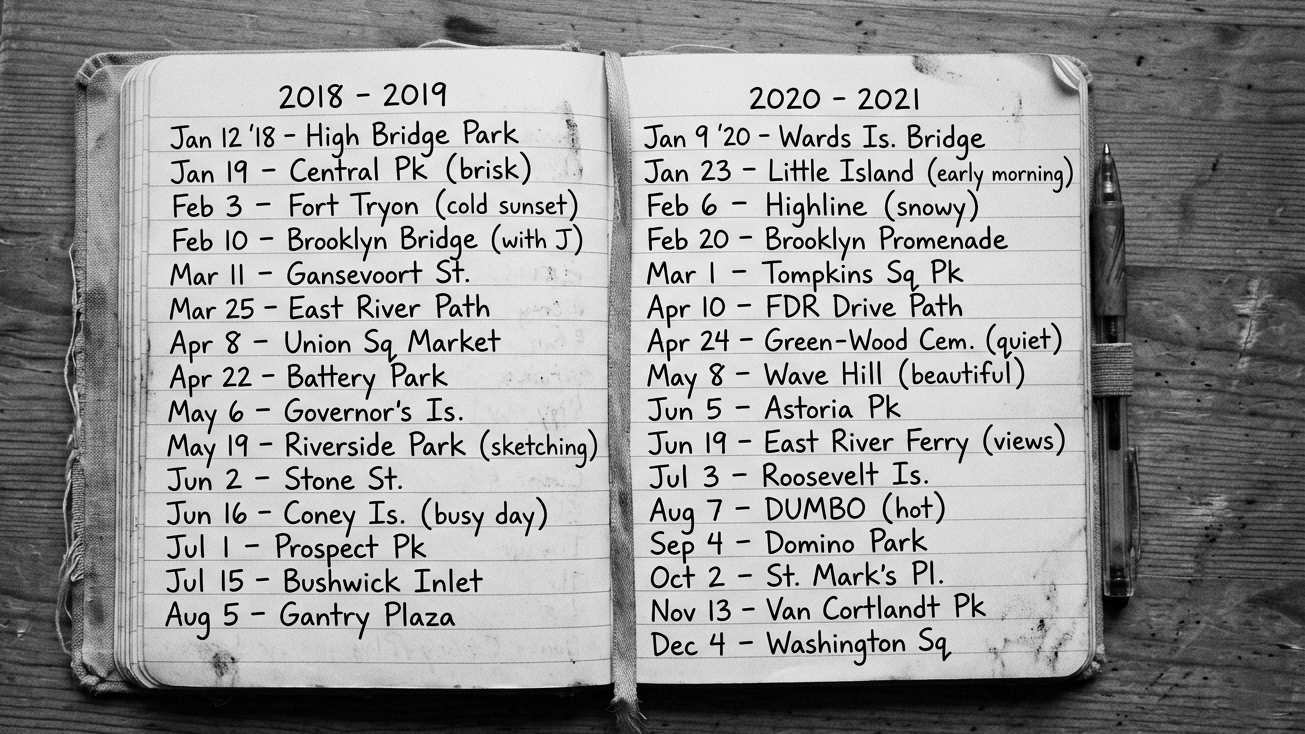 2018 - 2019
Jan 12 '18 - High Bridge Park
Jan 19 - Central Pk (brisk)
Feb 3 - Fort Tryon (cold sunset)
Feb 10 - Brooklyn Bridge (with J)
Mar 11 - Gansevoort St.
Mar 25 - East River Path
Apr 8 - Union Sq Market
Apr 22 - Battery Park
May 6 - Governor's Is.
May 19 - Riverside Park (sketching)
Jun 2 - Stone St.
Jun 16 - Coney Is. (busy day)
Jul 1 - Prospect Pk
Jul 15 - Bushwick Inlet
Aug 5 - Gantry Plaza
2020 - 2021
Jan 9 '20 - Wards Is. Bridge
Jan 23 - Little Island (early morning)
Feb 6 - Highline (snowy)
Feb 20 - Brooklyn Promenade
Mar 1 - Tompkins Sq Pk
Apr 10 - FDR Drive Path
Apr 24 - Green-Wood Cem. (quiet)
May 8 - Wave Hill (beautiful)
Jun 5 - Astoria Pk
Jun 19 - East River Ferry (views)
Jul 3 - Roosevelt Is.
Aug 7 - DUMBO (hot)
Sep 4 - Domino Park
Oct 2 - St. Mark's Pl.
Nov 13 - Van Cortlandt Pk
Dec 4 - Washington Sq